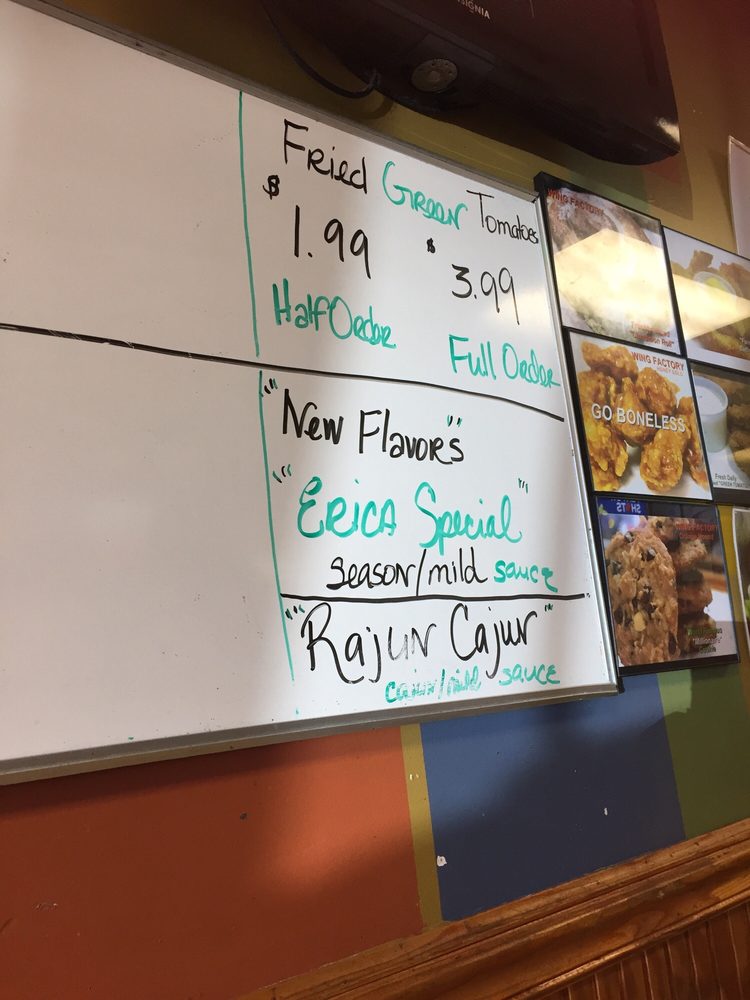 INSIGNIA
Fried Green Tomatoes
$1.99 $3.99
Half Order Full Order
"New Flavor"s
"Erica Special"
season/mild sauce
"Rajun Cajun"
cajun/mild sauce
WING FACTORY
WING FACTORY
GO BONELESS
Fresh Daily
WING FACTORY